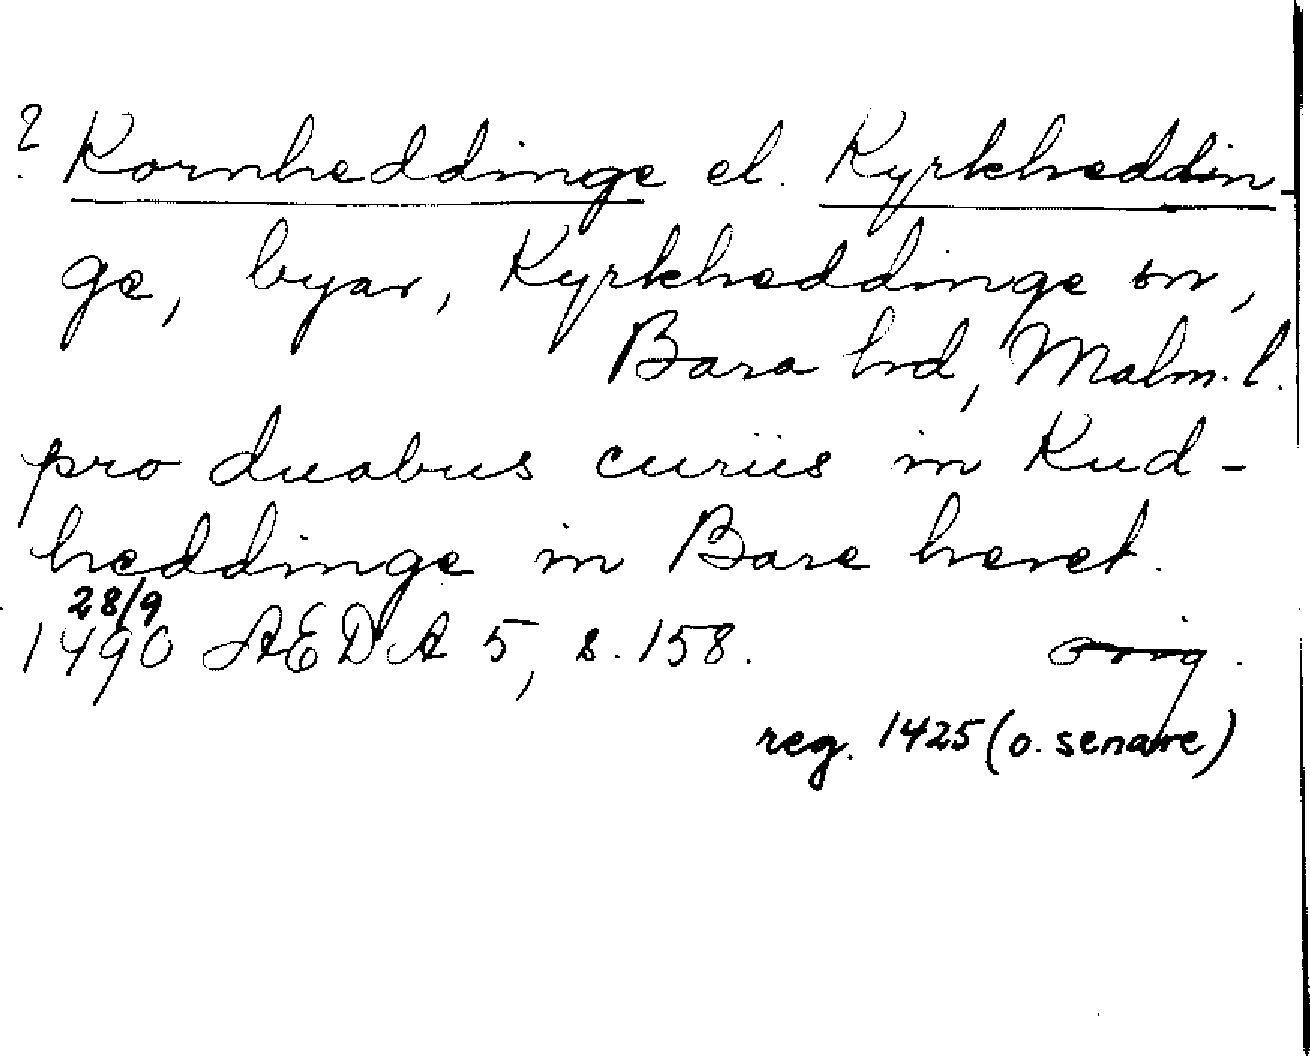 ? Kornheddinge el. Kyrkheddin-
ge, byar, Kyrkheddinge sn,
Bara hd, Malm. l.
pro duabus curiis in Kud-
heddinge in Bare heret.
28/9
1490 AEDA 5, s. 158. orig.
reg. 1425 (o. senare)